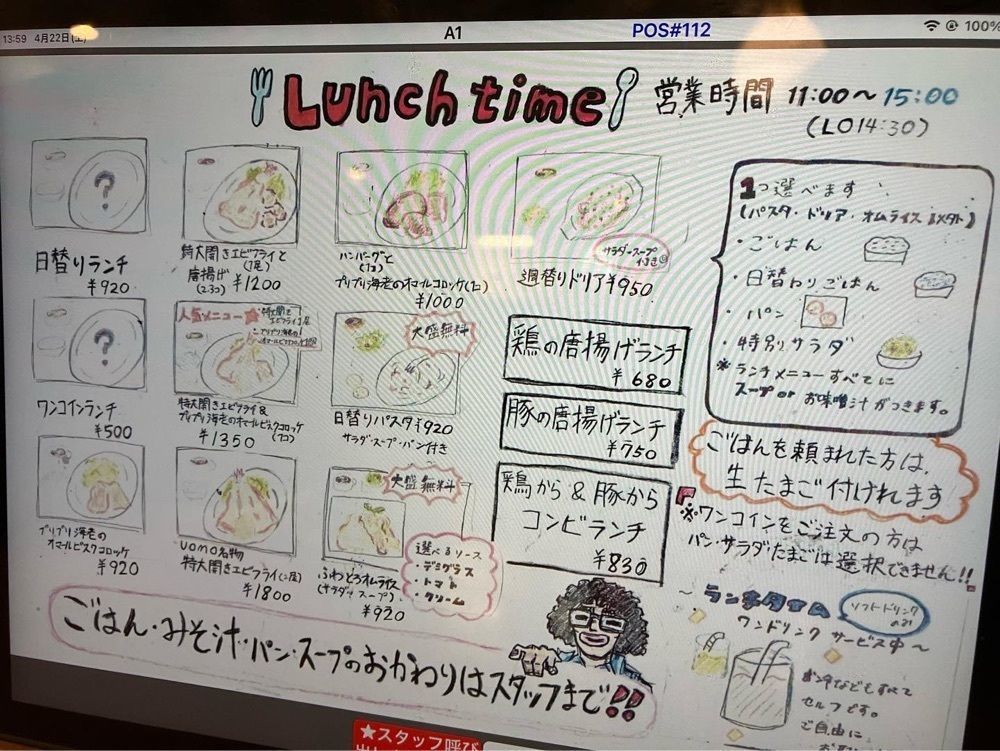 13:59 4月22日(土)
A1
POS#112
100%
Lunch time
営業時間 11:00～15:00
(LO14:30)
?
日替りランチ
¥920
特大開きエビフライと
(1尾)
唐揚げ
(2コ) ¥1200
ハンバーグと
(1コ)
プリプリ海老のオマールコロッケ(1コ)
¥1000
サラダ・スープ
付き
週替りドリア ¥950
?
ワンコインランチ
¥500
人気メニュー
特大開き
エビフライ1尾
プリプリ海老の
オマールビスクコロッケ1個
特大開きエビフライ&
プリプリ海老のオマールビスクコロッケ
(1コ)
¥1350
大盛無料
日替りパスタ ¥920
サラダ・スープ・パン付き
プリプリ海老の
オマールビスクコロッケ
¥920
uomo名物
特大開きエビフライ(二尾)
¥1800
大盛無料
ふわとろオムライス
(サラダ+スープ)
¥920
選べるソース
・デミグラス
・トマト
・クリーム
鶏の唐揚げランチ
¥680
豚の唐揚げランチ
¥750
鶏から & 豚から
コンビランチ
¥830
1つ選べます
(パスタ・ドリア・オムライス 以外)
・ごはん
・日替わりごはん
・パン
・特別サラダ
※ランチメニューすべてに
スープor お味噌汁がつきます。
ごはんを頼まれた方は、
生たまご付けれます
※ワンコインをご注文の方は
パン・サラダ・たまごは選択できません!!
～ランチタイム
ソフトドリンク
のみ
ワンドリンク サービス中～
お冷などもすべて
セルフです。
ご自由に
ごはん・みそ汁・パン・スープのおかわりはスタッフまで!!
★スタッフ呼び